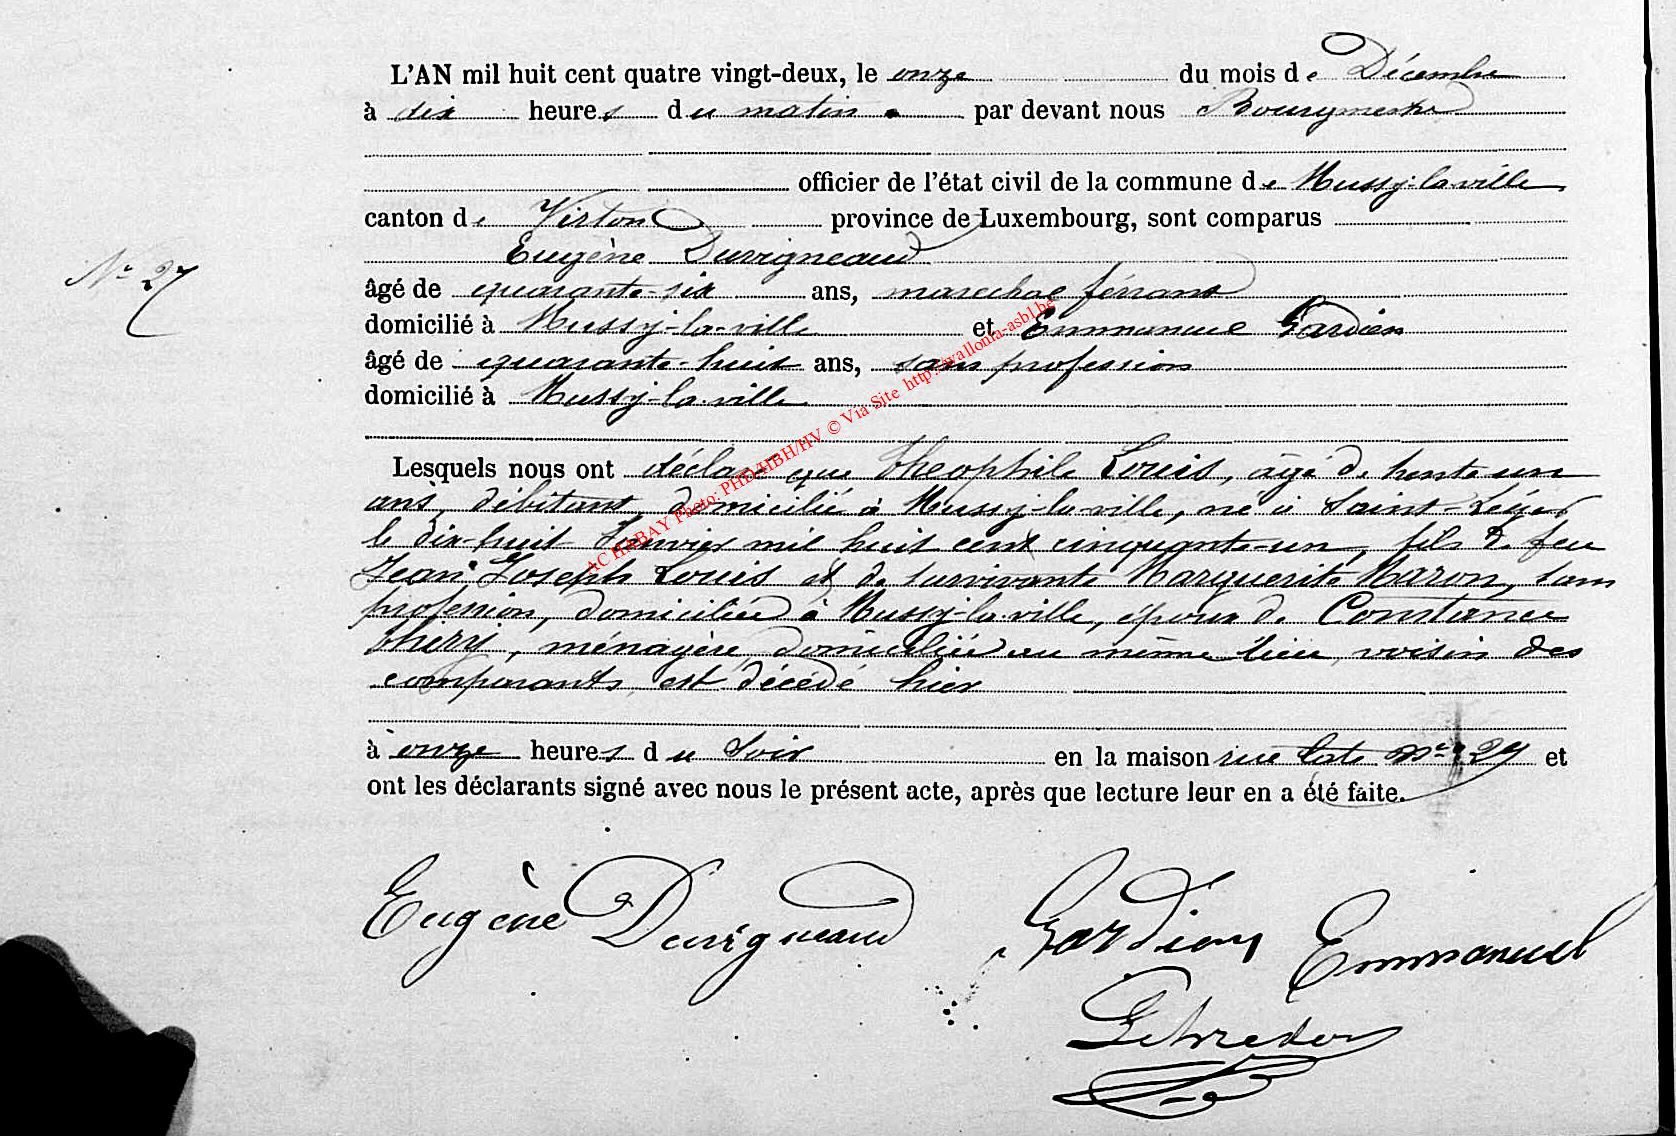 L'AN mil huit cent quatre vingt-deux, le onze du mois de Décembre
à dix heures du matin par devant nous Bourgmestre
officier de l'état civil de la commune de Mussy-la-ville
canton de Virton province de Luxembourg, sont comparus
Eugène Duvigneaud
N° 27
âgé de quarante-six ans, marechal ferrant
domicilié à Mussy-la-ville et Emmanuel Gardien
âgé de quarante-huit ans, sans profession
domicilié à Mussy-la-ville
Lesquels nous ont déclaré que Théophile Louis, âgé de trente-un
ans, débitant, domicilié à Mussy-la-ville, né à Saint-Léger
le dix-huit Janvier mil huit cent cinquante-un, fils de feu
Jean Joseph Louis et de survivante Marguerite Maron, sans
profession, domiciliée à Mussy-la-ville, époux de Constance
thiry, ménagère, domiciliée au même lieu, voisin des
comparants, est décédé hier
à onze heures du soir en la maison rue N° 27 et
ont les déclarants signé avec nous le présent acte, après que lecture leur en a été faite.
Eugène Duvigneaud Gardien Emmanuel
ACHABAY Photo: PHD/HBH/HV © Via Site http://wallonia-asbl.be